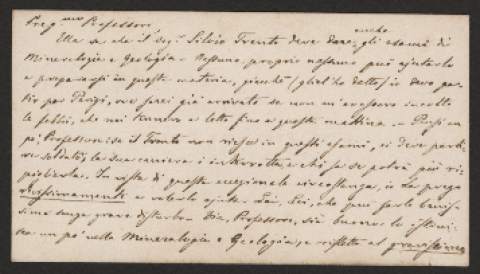 Preg.mo Professore,
Ella sa che il sig.r Silvio Trento deve dare anche gli esami di
Mineralogia e Geologia. Nessuno proprio nessuno può ajutarlo
a prepararsi in queste materie, giacchè (gliel'ho detto) io devo par-
tir per Parigi, ove sarei già arrivato se non m'avessero incolto
le febbri, che mi tennero a letto fino a questa mattina. Pensi un
po', Professore: se il Trento non riesce in questi esami, ei deve partire
soldato, la sua carriera è interrotta, e chi sa se potrà più ri-
pigliarla. In vista di queste eccezionali circostanze, io La prego
vivissimamente a volerlo ajutare Lei, Lei, che può farlo benis-
simo senza grave disturbo. Sia, Professore, sia buono: lo istruisca
un po' nella Mineralogia e Geologia, e rifletta al gravissimo